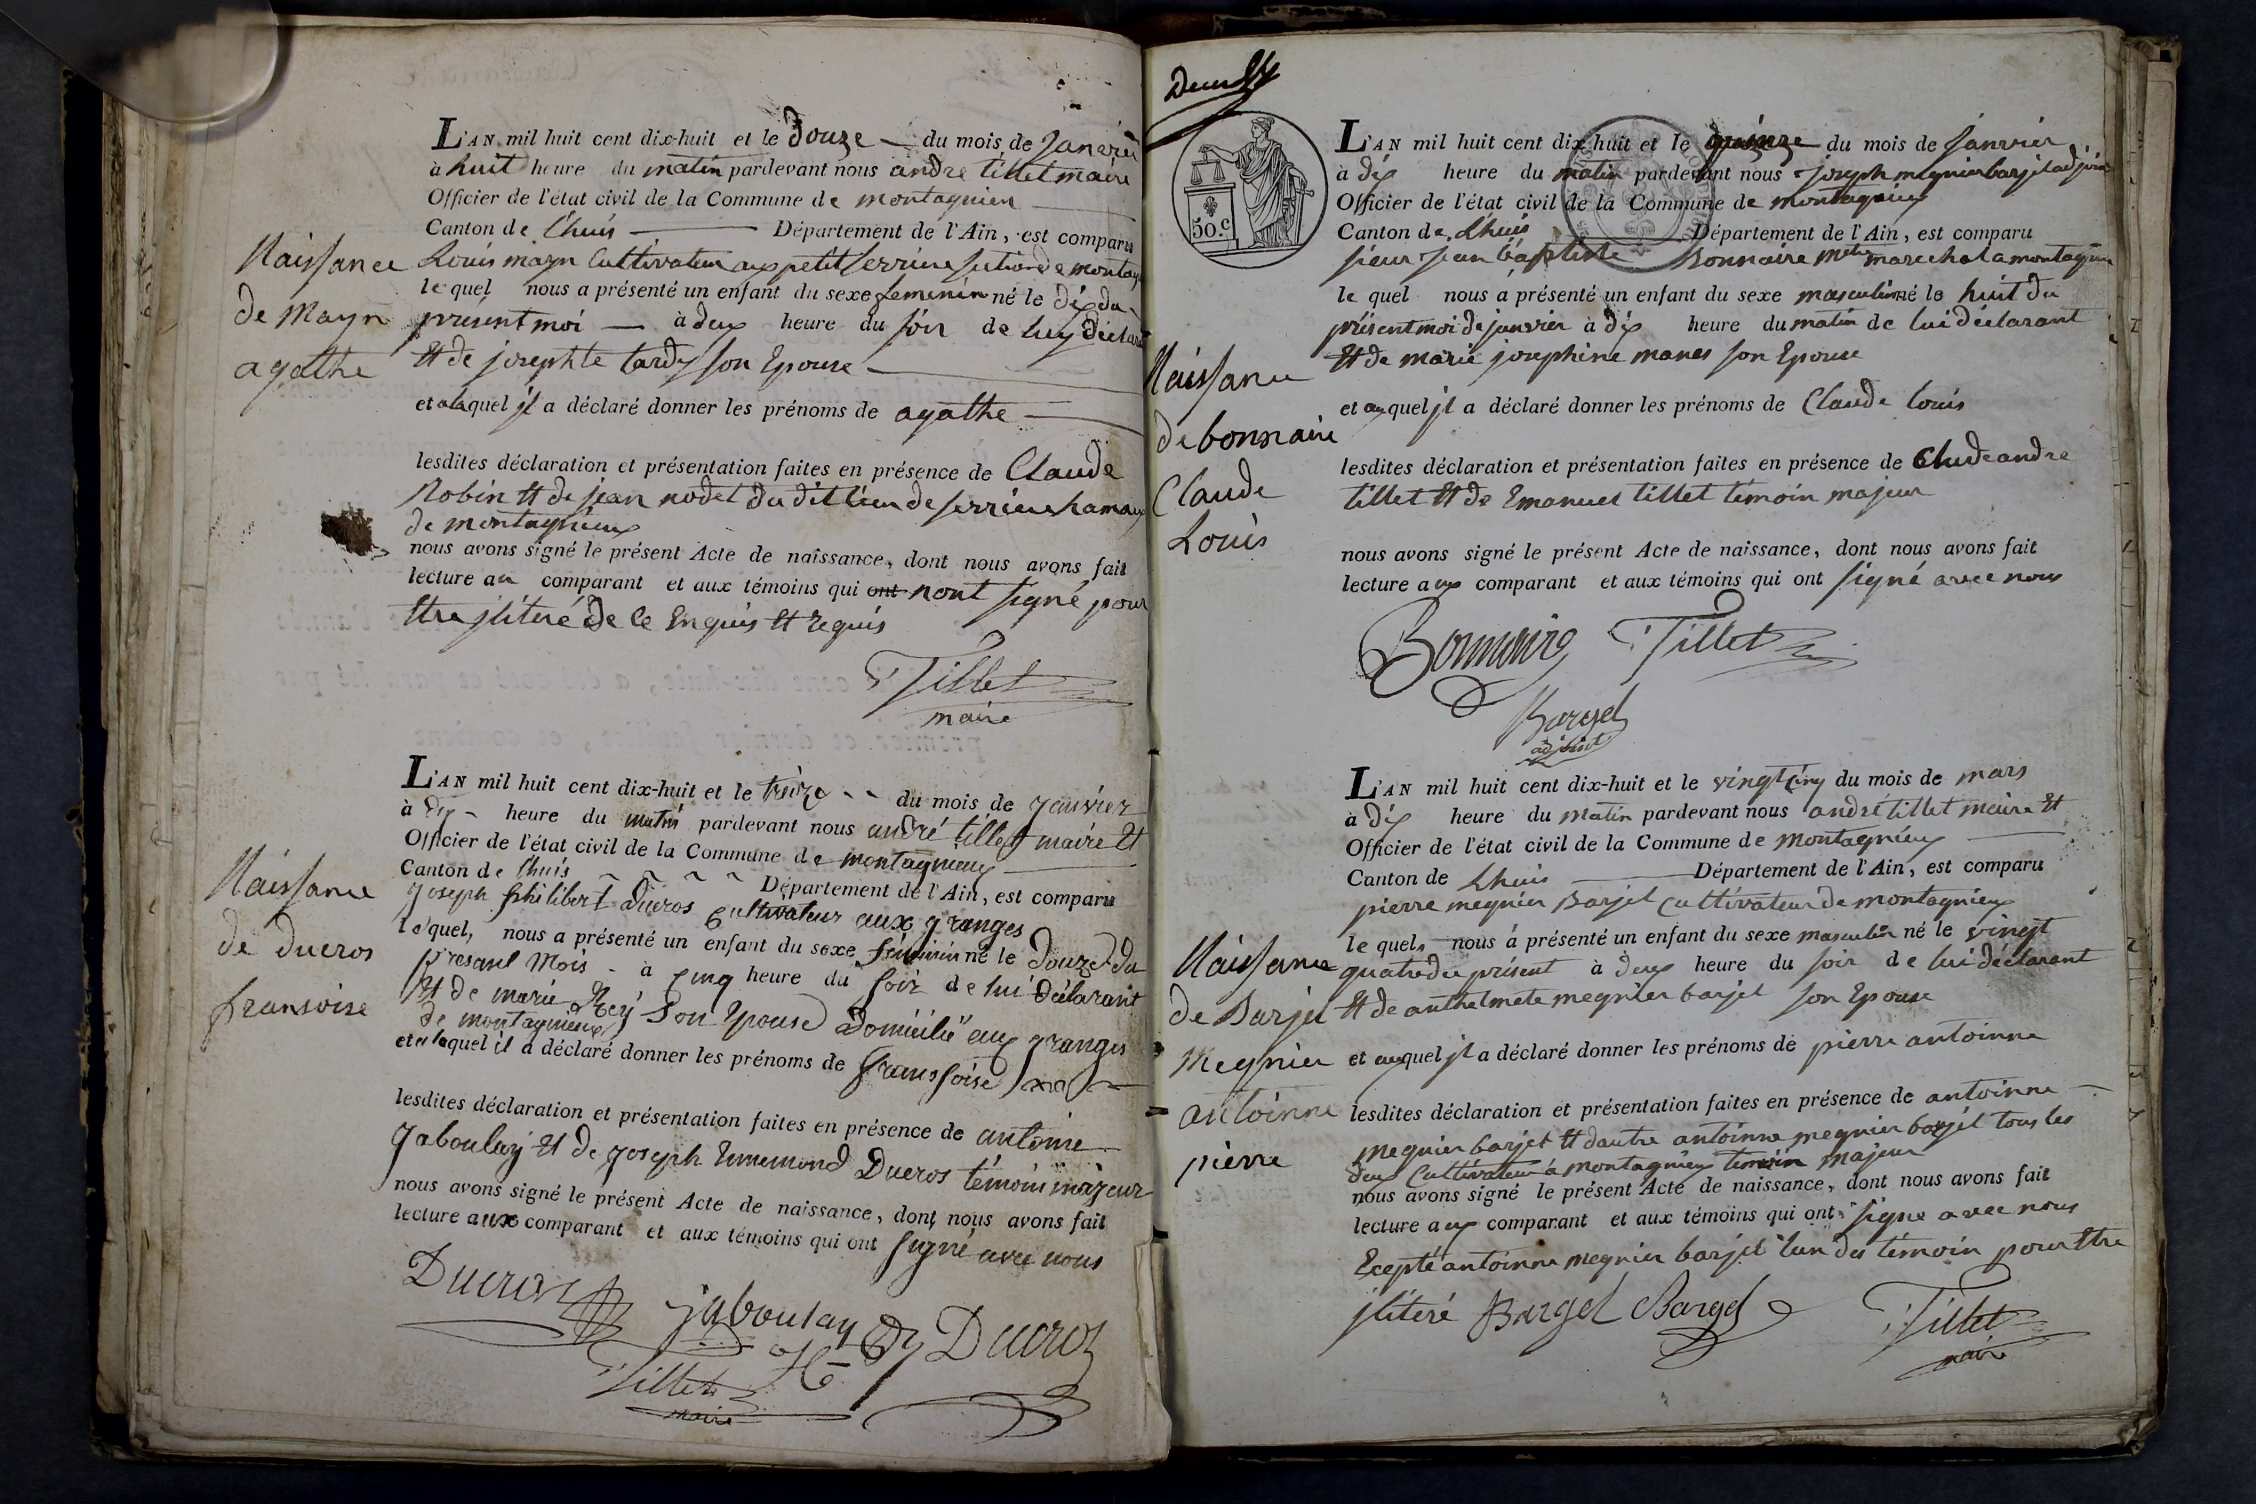 L'AN mil huit cent dix-huit et le douze du mois de Janvier
à huit heure du matin pardevant nous andré tillet maire
Officier de l'état civil de la Commune de montagnieu
Canton de Lhuis Département de l'Ain, est comparu
Louis mayn Cultivateur au petit Serrieu section de montag
le quel nous a présenté un enfant du sexe feminin né le dix du
présent moi à deux heure du soir de luy déclarant
Et de josephte tardy son Epouse
et a laquel il a déclaré donner les prénoms de agathe
lesdites déclaration et présentation faites en présence de Claude
Robin Et de jean nodet du dit lieu de serrieu hamaux
de montagnieux
nous avons signé le présent Acte de naissance, dont nous avons fait
lecture au comparant et aux témoins qui ont nont signé pour
Etre jliteré de ce Enquis Et requis
Tillet
maire
Naissance
de Mayn
agathe
L'AN mil huit cent dix-huit et le treize du mois de janvier
à dix heure du matin pardevant nous andré tillet maire Et
Officier de l'état civil de la Commune de montagnieux
Canton de Lhuis Département de l'Ain, est comparu
joseph philibert ducros Cultivateur aux granges
le quel, nous a présenté un enfant du sexe féminin né le douze du
présant mois à cinq heure du soir de lui déclarant
Et de marie Rey son Epouse domicilié aux granges
de montagnieux
et a laquel il a déclaré donner les prénoms de fransoise
lesdites déclaration et présentation faites en présence de antoine
jaboulay Et de joseph Ennemond Ducros témoins majeur
nous avons signé le présent Acte de naissance, dont nous avons fait
lecture aux comparant et aux témoins qui ont signé avec nous
Ducros
jaboulay
Ducros
Tillet
maire
Naissance
de ducros
fransoise
50.c
L'AN mil huit cent dix-huit et le quinze du mois de Janvier
à dix heure du matin pardevant nous joseph megnier barjet adjoin
Officier de l'état civil de la Commune de montagnieux
Canton de Lhuis Département de l'Ain, est comparu
sieur jean baptiste Bonnaire marechal a montagnieu
le quel nous a présenté un enfant du sexe masculin né le huit du
présent moi de janvier à dix heure du matin de lui déclarant
Et de marie josephine manes son Epouse
et auquel jl a déclaré donner les prénoms de Claude Louis
lesdites déclaration et présentation faites en présence de Clude andre
tillet Et de Emanuel tillet témoin majeur
nous avons signé le présent Acte de naissance, dont nous avons fait
lecture aux comparant et aux témoins qui ont signé avec nous
Bonnaire
Tillet
Bargel
adjoint
Naissance
de bonnaire
Claude
Louis
L'AN mil huit cent dix-huit et le vingt cinq du mois de mars
à dix heure du matin pardevant nous andré tillet maire Et
Officier de l'état civil de la Commune de montagnieux
Canton de Lhuis Département de l'Ain, est comparu
pierre megnier Barjet Cultivateur de montagnieux
le quel nous a présenté un enfant du sexe masculin né le vingt
quatre du présent à deux heure du soir de lui déclarant
Et de anthelmete megnier barjet son Epouse
et auquel jl a déclaré donner les prénoms de pierre antoinne
lesdites déclaration et présentation faites en présence de antoinne
megnier barjet Et dautre antoinne megnier barjet tous les
deux Cultivateur a montagnieux temoin majeur
nous avons signé le présent Acte de naissance, dont nous avons fait
lecture aux comparant et aux témoins qui ont signe avec nous
Excepté antoinne megnier barjet lun des témoin pour Etre
jliteré Bargel Bargel
Tillet
maire
Naissance
de Barjet
Megnier
antoinne
pierre